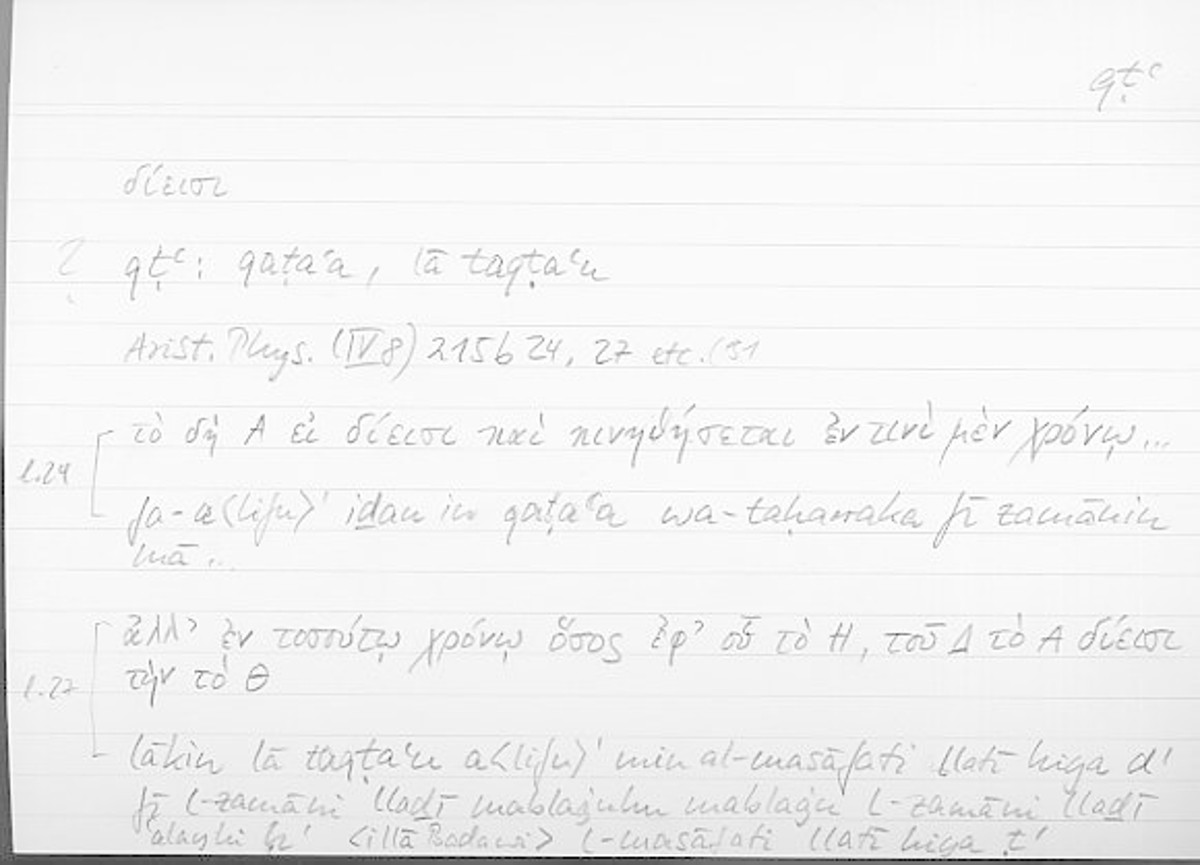 qṭʿ
δίεισι
? qṭʿ: qaṭaʿa, lā taqṭaʿu
Arist. Phys. (IV 8) 215b 24, 27 etc. (31
τὸ δὴ Α εἰ δίεισι καὶ κινηθήσεται ἐν τινὶ μὲν χρόνῳ...
l.24
fa-a<lifu>' iḏan in qaṭaʿa wa-taḥarraka fī zamānin
mā ...
ἀλλ' ἐν τοσούτῳ χρόνῳ ὅσος ἐφ' οὗ τὸ Η, τοῦ Δ τὸ Α δίεισι
τὴν τὸ Θ
l.27
lākin lā taqṭaʿu a<lifu>' min al-masāfati llatī hiya d'
fī l-zamāni llaḏī mablaġuhu mablaġu l-zamāni llaḏī
ʿalayhi ḥ' <illā Badawi> l-masāfati llatī hiya ṭ'